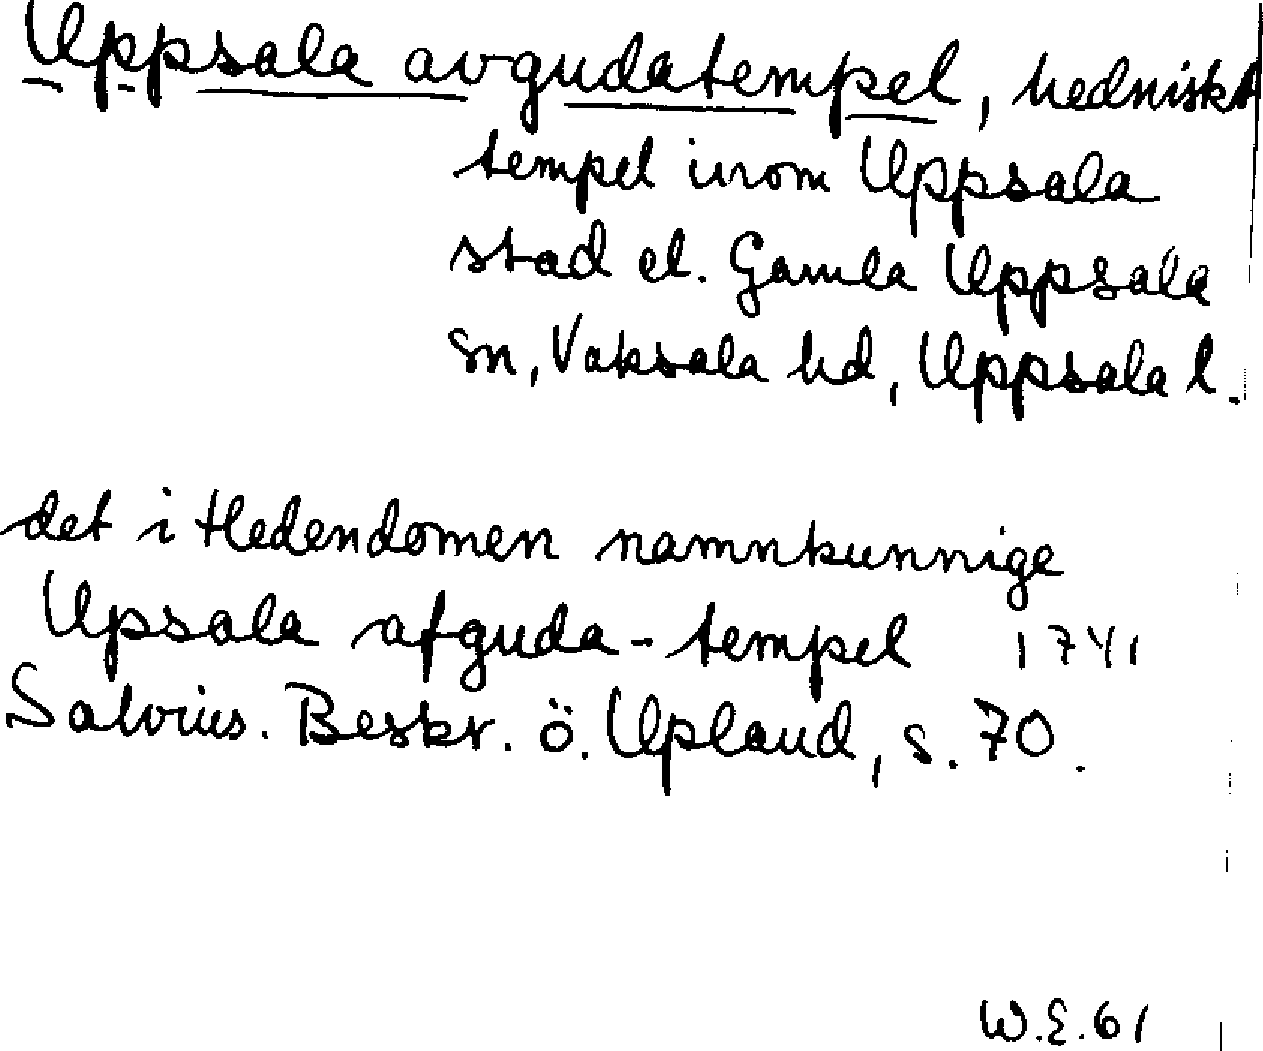 Uppsala avgudatempel, hedniskt
tempel inom Uppsala
stad el. Gamla Uppsala
sn, Vaksala hd, Uppsala l.
det i Hedendomen namnkunnige
Upsala afguda-tempel 1741
Salvius. Beskr. ö. Upland, s. 70.
W.E.61